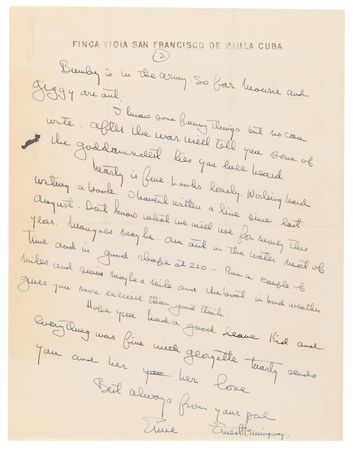 FINCA VIGIA SAN FRANCISCO DE PAULA CUBA
(2)
Bumby is in the army. So far Mousie and
Giggy are out.
I know some funny things but no can
write. After the war will tell you some of
the goddamndest lies you ever heard
Marty is fine looks lovely working hard
writing a book. I haven't written a line since last
August. Dont know what we will use for money this
year. Mangoes maybe. Am out on the water most of
time and in good shape at 220 - Run a couple of
miles and swim maybe a mile and the boat in bad weather
gives you more exercise than you'd think.
Hope you had a good leave Kid and
everything was fine with Georgette. Marty sends
you and her her love.
Best always from your pal
Ernie Ernest Hemingway